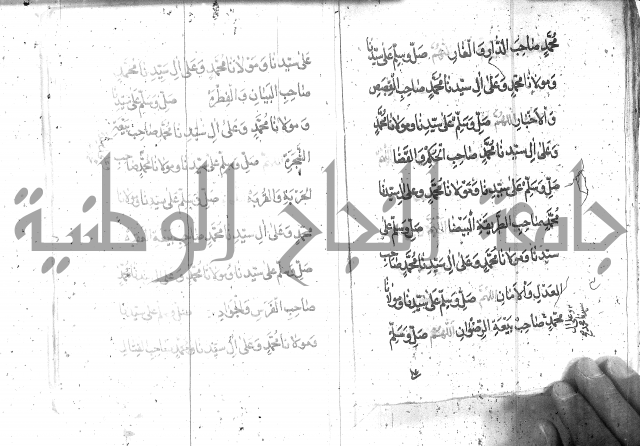 محمد صاحب الدار والغار اللهم صل وسلم على سيدنا
ومولانا محمد وعلى آل سيدنا محمد صاحب القصص
والأخبار اللهم صل وسلم على سيدنا ومولانا محمد
وعلى آل سيدنا محمد صاحب الحكم والقضا اللهم
صل وسلم على سيدنا ومولانا محمد وعلى آل سيدنا
محمد صاحب الطريقة البيضا اللهم صل وسلم على
سيدنا ومولانا محمد وعلى آل سيدنا محمد صاحب
العدل والأمان اللهم صل وسلم على سيدنا ومولانا
محمد صاحب بيعة الرضوان اللهم صل وسلم
على سيدنا ومولانا محمد وعلى آل سيدنا محمد
صاحب البيان والفطرة صل وسلم على سيدنا
ومولانا محمد وعلى آل سيدنا محمد صاحب بيعة
الشجرة صل وسلم على سيدنا ومولانا محمد
صل وسلم على سيدنا ومولانا
محمد وعلى آل سيدنا محمد صاحب
صل وسلم على سيدنا ومولانا محمد وعلى آل سيدنا محمد
صاحب الفرس والجواد صل وسلم على سيدنا
ومولانا محمد وعلى آل سيدنا محمد صاحب
جامعة النجاح الوطنية